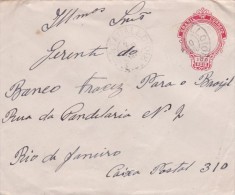 Illmos Snrs
Gerente do
Banco Francez Para o Brazil
Rua da Candelaria Nº 2
Rio de Janeiro
Caixa Postal 310